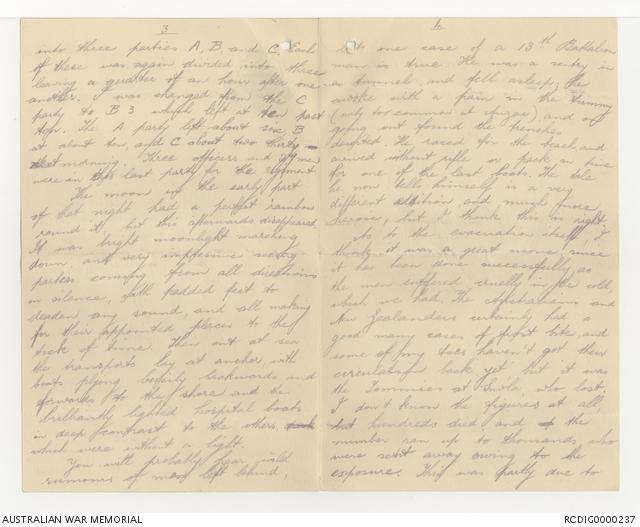 3
into three parties A, B, and C. Each
of these was again divided into three
leaving a quarter of an hour after one
another. I was changed from the C
party to B 3 which left at ten past
ten. The A party left about six, B
at about ten, and C about two thirty
next morning. Three officers and men
were in this last party for the regiment
The moon in the early part
of that night had a perfect rainbow
round it, but this afterwards disappeared.
It was bright moonlight marching
down, and very impressive seeing
parties coming from all directions
in silence, with padded feet to
deaden any sound, and all making
for their appointed places to the
tick of time. Then out at sea
the transports lay at anchor with
boats plying busily backwards and
forwards to the shore and the
brilliantly lighted hospital boats
in deep contrast to the others,
which were without a light.
You will probably hear wild
rumours of men left behind,
but one case of a 13th Battalion
man is true. He was a sentry in
a tunnel and fell asleep, he
awoke with a pain in the tummy
(only too common at Anzac), and on
going out found the trenches
deserted. He raced for the beach, and
arrived without rifle or pack in time
for one of the last boats. The tale
he now tells himself is a very
different edition, and much more
heroic, but I think this is right
As to the evacuation itself, I
think it was a great move, since
it has been done successfully, as
the men suffered cruelly in the cold,
which we had. The Australians and
New Zealanders certainly had a
good many cases of frost bite, and
some of my toes haven't got their
circulation back yet, but it was
the Tommies at Suvla who lost.
I don't know the figures at all,
but hundreds died and the
number ran up to thousands who
were sent away owing to the
exposure. This was partly due to
AUSTRALIAN WAR MEMORIAL
RCDIG0000237